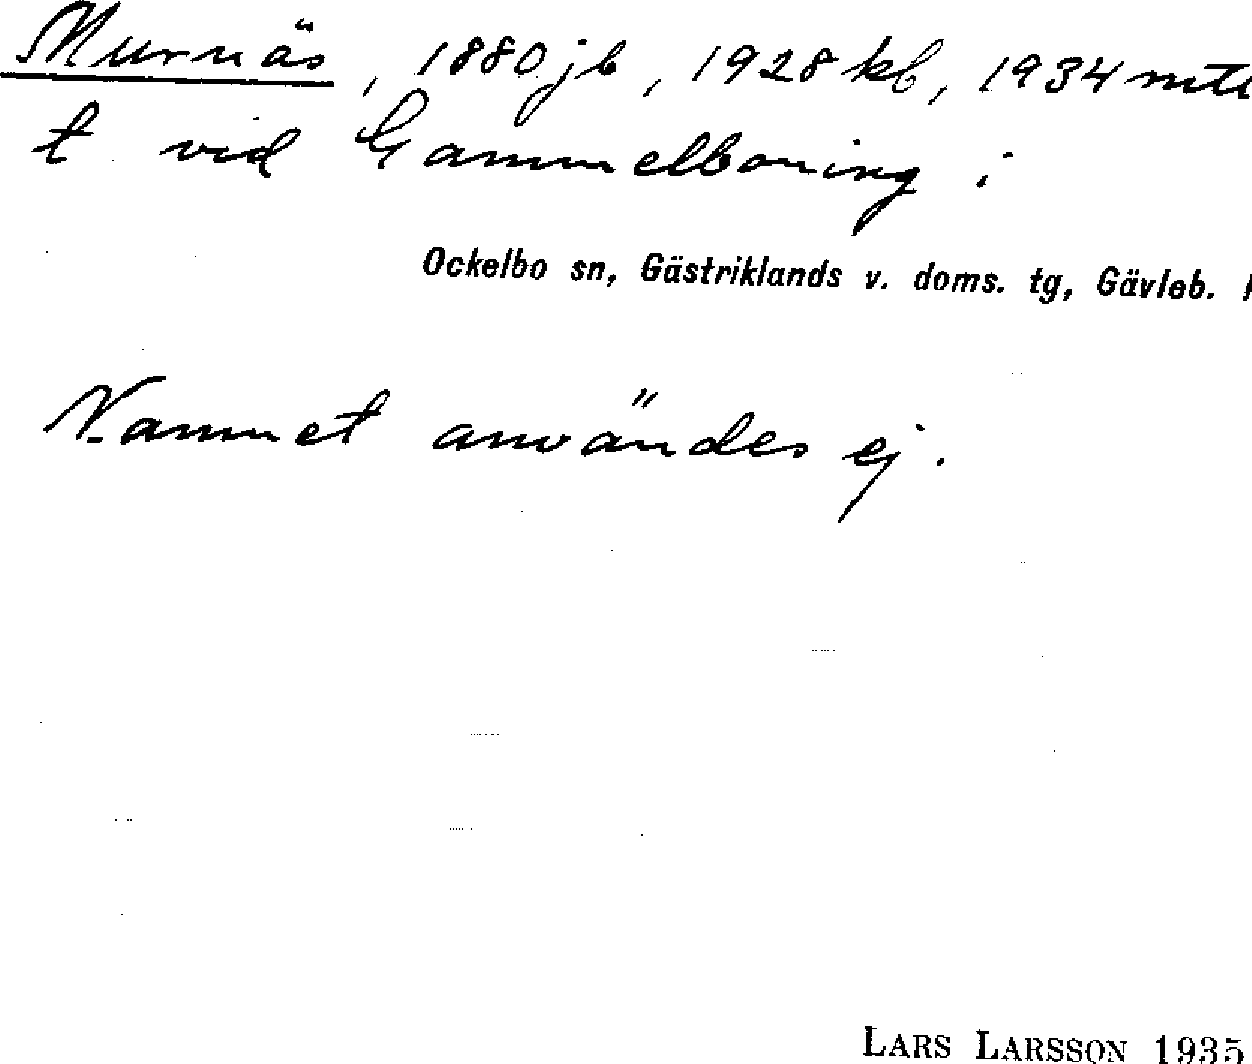 Murnäs, 1880 jb, 1928 kb, 1934 mtl
t vid Gammelboning i
Ockelbo sn, Gästriklands v. doms. tg, Gävleb. l
Namnet användes ej.
LARS LARSSON 1935